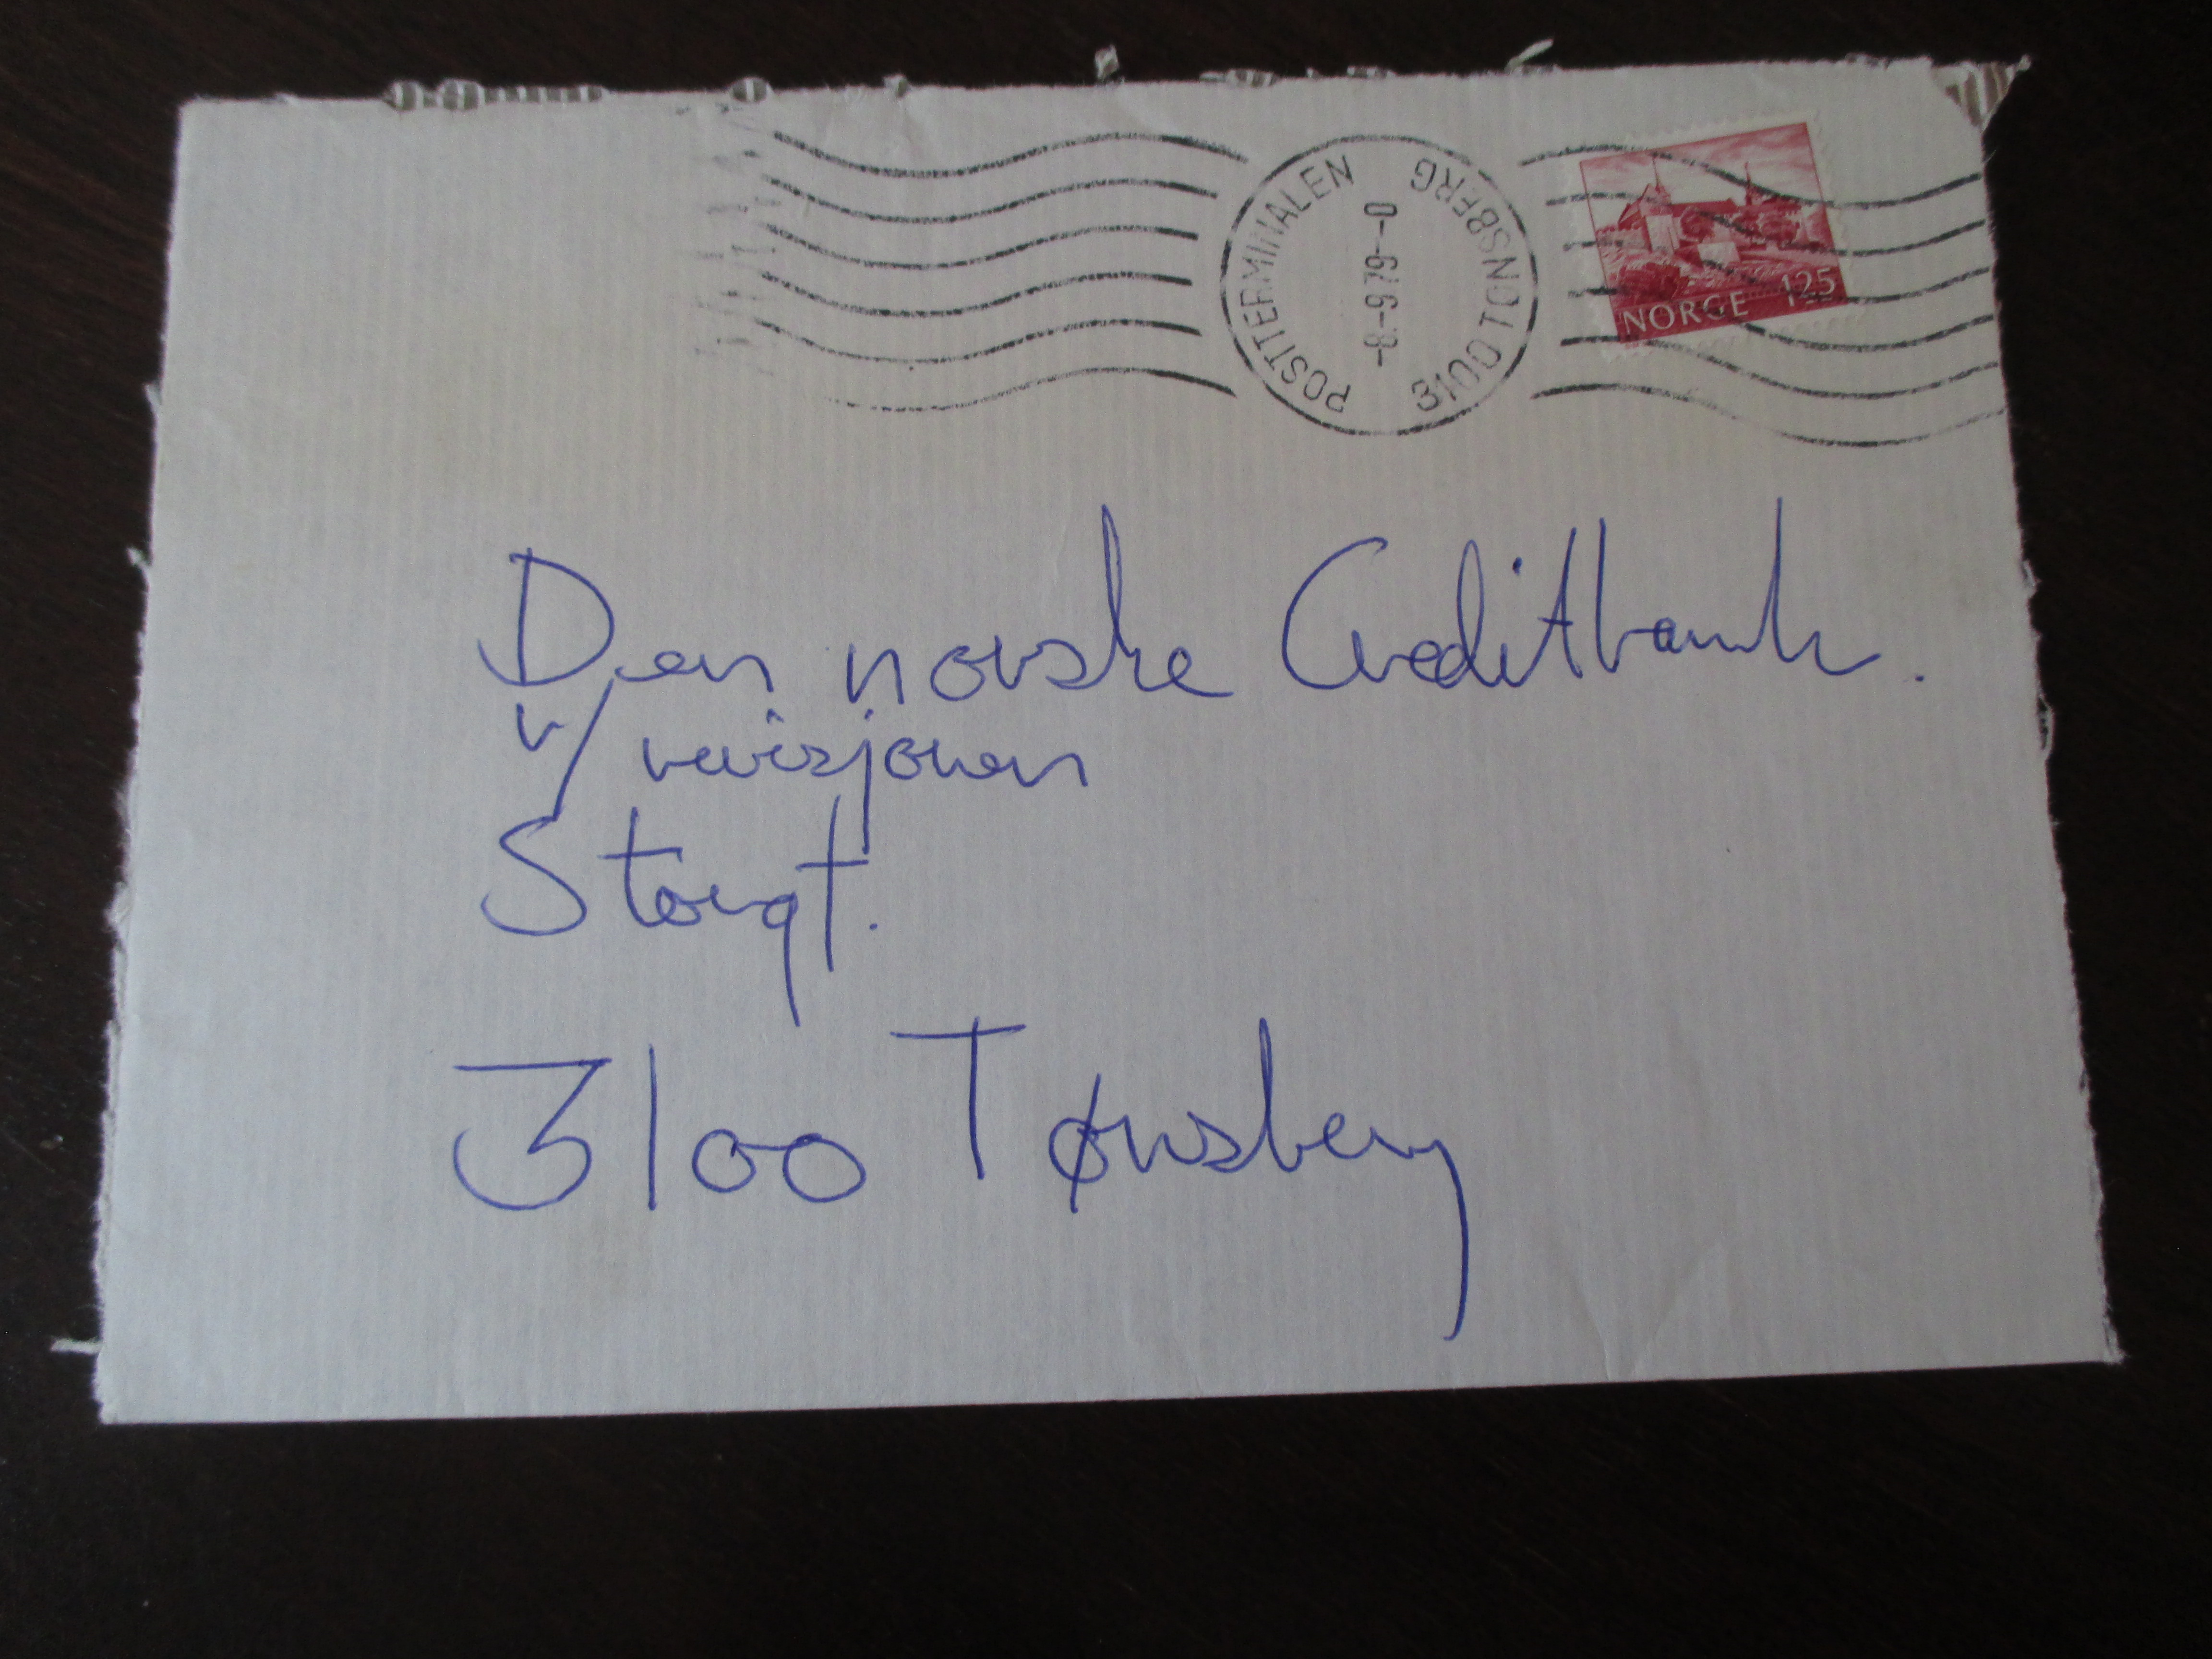 POSTTERMINALEN
3100 TØNSBERG
NORGE 125
Den norske Creditbank.
v/ revisjonen
Storgt.
3100 Tønsberg